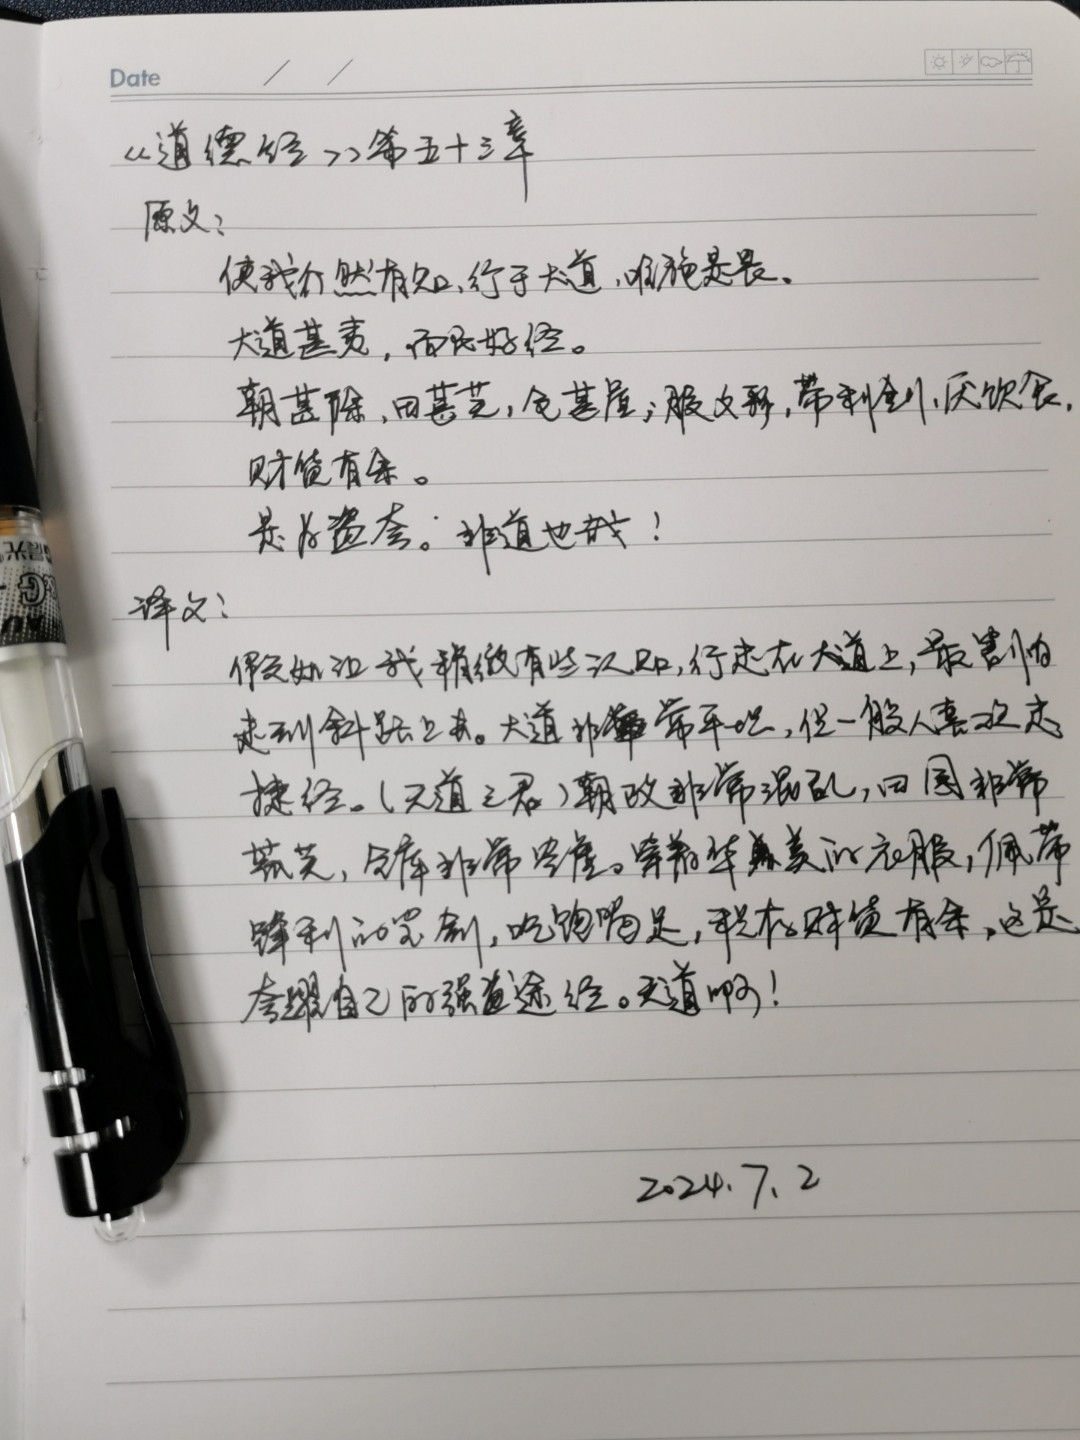 Date / /
《道德经》第五十三章
原文：
使我介然有知，行于大道，唯施是畏。
大道甚夷，而民好径。
朝甚除，田甚芜，仓甚虚；服文彩，带利剑，厌饮食，
财货有余。
是为盗夸。非道也哉！
译文：
假如让我稍微有些认知，行走在大道上，最害怕
走到斜路上去。大道非常平坦，但一般人喜欢走
捷径。（无道之君）朝政非常混乱，田园非常
荒芜，仓库非常空虚。穿着华美的衣服，佩带
锋利的宝剑，吃饱喝足，积存财货有余，这是
夸耀自己的强盗途径。无道啊！
2024.7.2